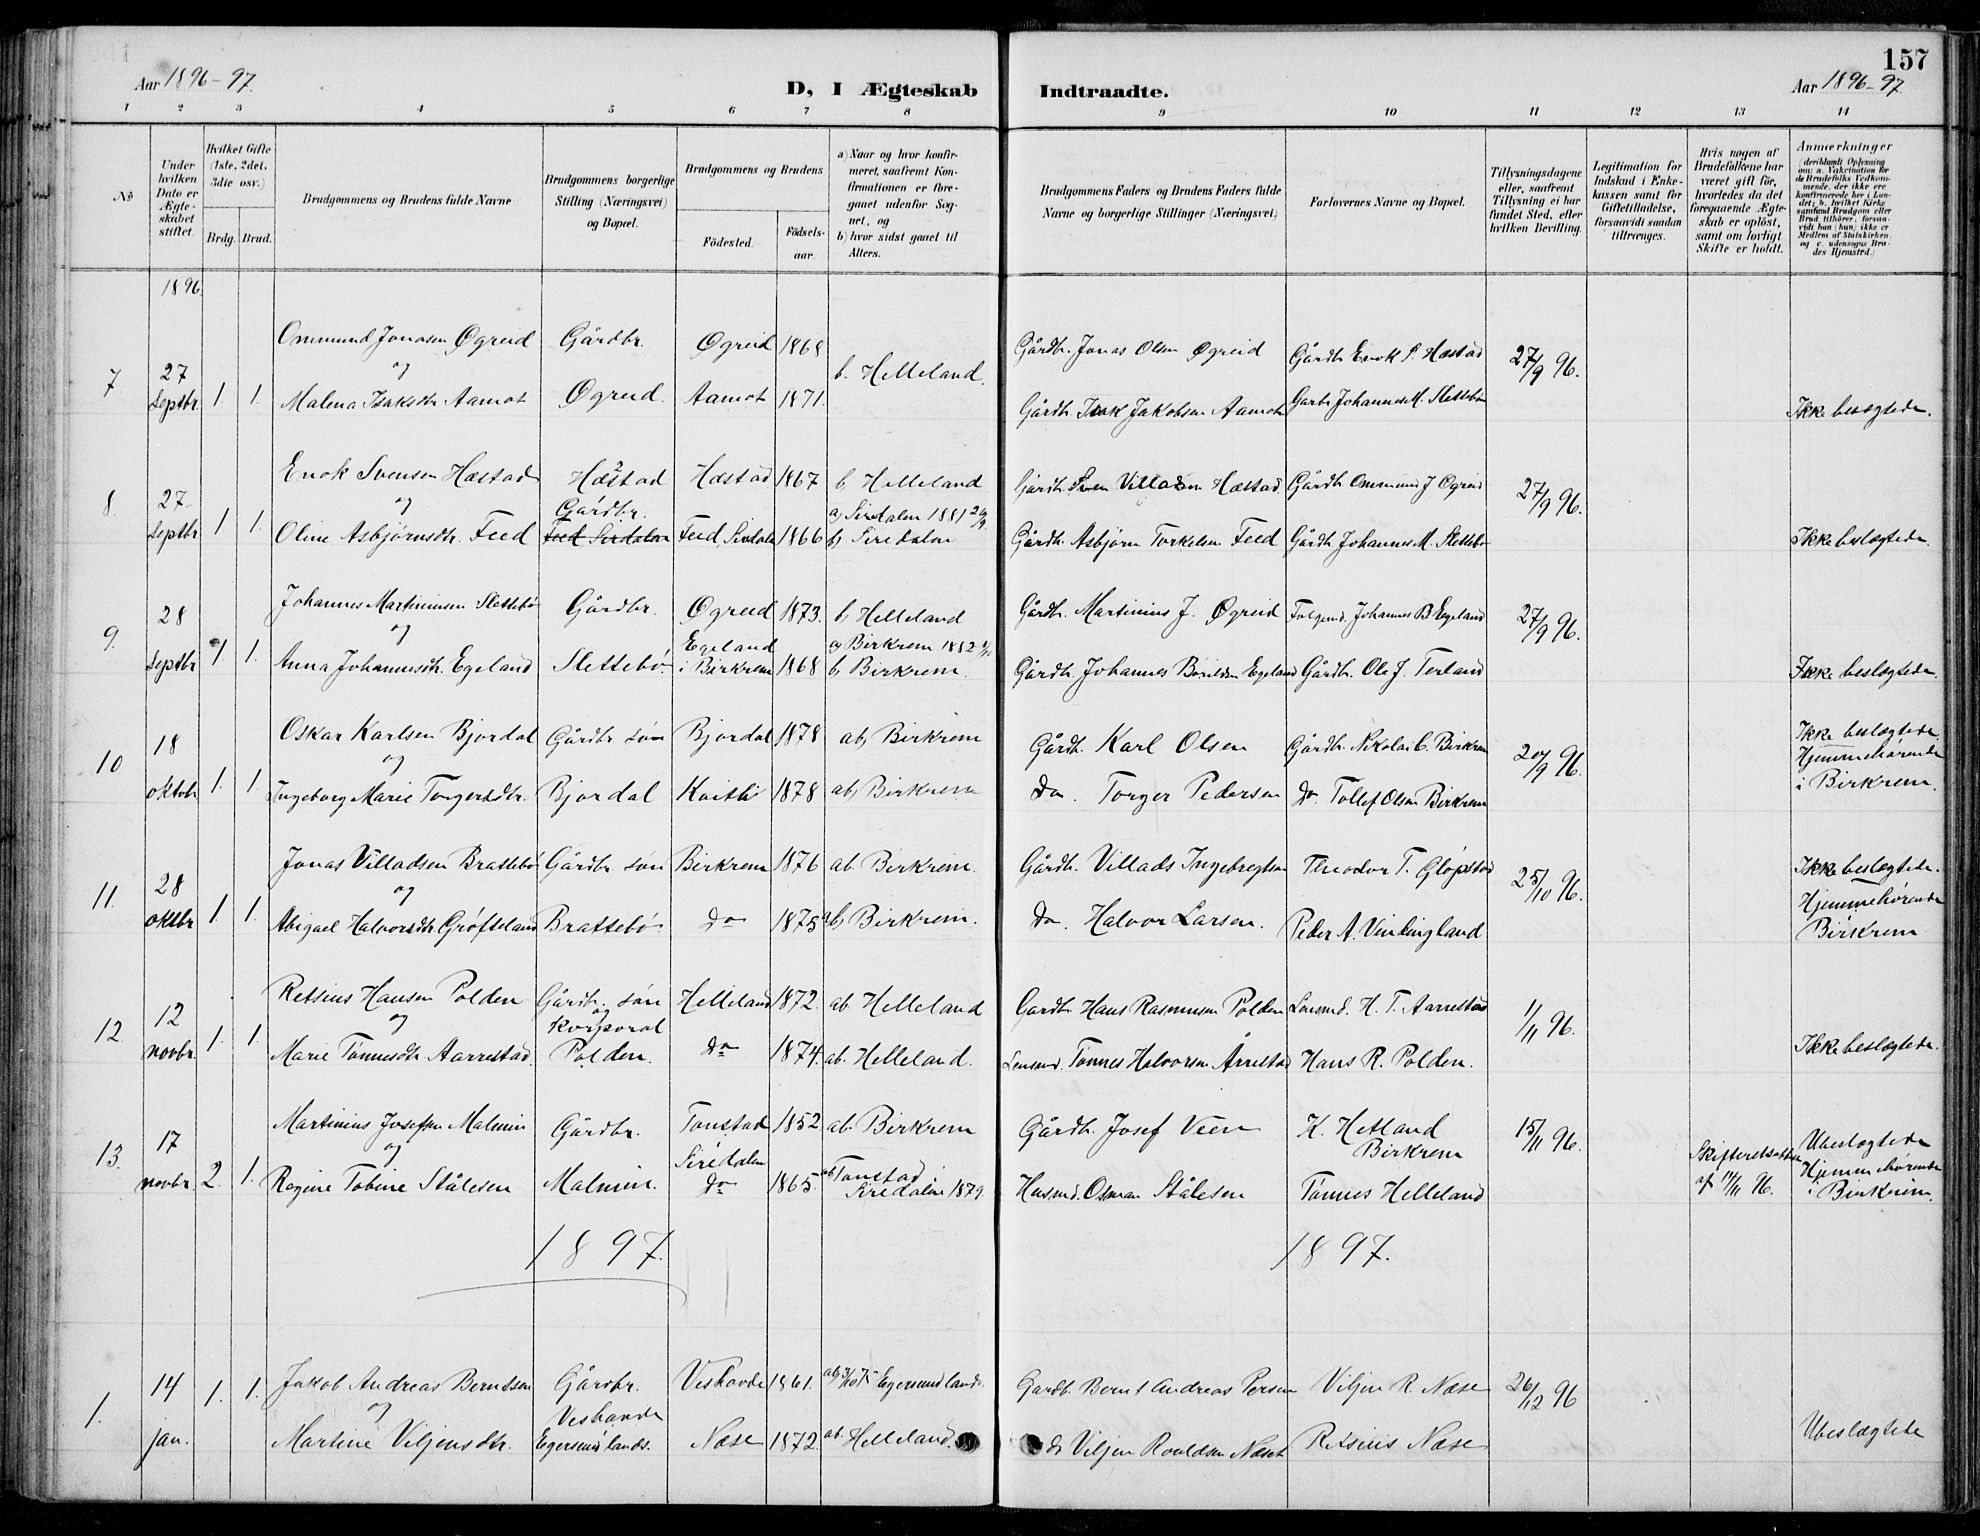 157
Aar 1896-97.
D, I Ægteskab Indtraadte.
Aar 1896-97
1 2 3 4 5 6 7 8 9 10 11 12 13 14
No
Under hvilken Dato er Ægteskabet stiftet.
Hvilket Gifte (1ste, 2det, 3die osv.)
Brdg. Brud.
Brudgommens og Brudens fulde Navne
Brudgommens borgerlige Stilling (Næringsvei) og Bopæl.
Brudgommens og Brudens
Fødested.
Fødselsaar.
a) Naar og hvor konfirmeret, saafremt Konfirmationen er foregaaet udenfor Sognet, og
b) hvor sidst gaaet til Alters.
Brudgommens Faders og Brudens Faders fulde Navne og borgerlige Stillinger (Næringsvei)
Forlovernes Navne og Bopæl.
Tillysningsdagene eller, saafremt Tillysning ei har fundet Sted, efter hvilken Bevilling.
Legitimation for Indskud i Enkekassen samt for Giftetilladelse, forsaavidt saadan tiltrænges.
Hvis nogen af Brudefolkene har været gift før, hvorledes da det foregaaende Ægteskab er opløst, samt om lovligt Skifte er holdt.
Anmærkninger (deriblandt Oplysning om: a. Vakcination for de Brudefolks Vedkommende, der ikke ere konfirmerede her i Landet; b. hvilket Kirkesamfund Brudgom eller Brud tilhører, forsaavidt han (hun) ikke er Medlem af Statskirken, og c. udensogns Brudes Hjemsted.)
1896
Ommund Jonasen Øgreid Gårdbr. Øgreid 1868 Gårdb. Jonas Olsen Øgreid Gårdb Enok S. Hæstad
7 27 og b. Helleland. 27/9 96.
Septbr. 1. 1. Malena Isaksdtr Aamot Øgreid. Aamot 1871. Gårdb. Isak Jakobsen Aamot Gårdb Johannes M. Slettebø Ikke beslægtede.
Enok Svensen Hæstad Hæstad Hæstad 1867 b Helleland Gårdb. Sven Villadsen Hæstad. Gårdb Ommund J Øgreid
8. 27 og Gårdbr. a) Siredalen 1881 27/9 96.
Septbr 1 1. Oline Asbjørnsdtr. Feed Feed Sirdalen Feed, Sirdalen 1866 b) Siredalen Gårdb. Asbjørn Torkelsen Feed Gårdb Johannes M. Slettebø Ikke beslægtede.
Johannes Martiniusen Slettebø Gårdbr. Øgreid 1873. b) Helleland Gårdb. Martinius J. Øgreid Johannes B Egeland
9. 28 og Egeland a) Birkrem 1882 27/9 96.
Septbr 1 1. Anna Johannesdtr. Egeland Slettebø. i Birkrem 1868 b Birkrem. Gårdb. Johannes Egeland Gårdb. Ole J. Terland Ikke beslægtede.
Oskar Karlsen Bjordal Gårdbr søn Bjordal 1878 ab) Birkrem Gårdb. Karl Olsen Gårdb. Nikolai C. Birkrem Ikke beslægtede
10 18 og 20/9 96. Hjemmehørende
oktobr 1. 1. Ingeborg Marie Torgersdtr. Bjordal 1878 ab) Birkrem Do. Torger Pedersen do. Tollef Olsen Birkrem i Birkrem.
Jonas Villadsen Brattebø Gårdbr søn Birkrem 1876 ab. Birkrem. Gårdb. Villads Ingebregtsen Theodor T. Gløpstad Ikke beslægtede.
11. 28 og 25/10 96. Hjemmehørende
oktbr 1. 1. Abigael Halvorsdtr Grøfteland Brattebø do 1875 ab) Birkrem. Do. Halvor Larsen. Peder A. Vindingland Birkrem
Retsius Hansen Polden Gårdb. søn Helleland 1872. ab Helleland Gardb. Hans Rasmussen Polden Lensmd. H. T. Aarrestad
12. 12 og og Korporal 1/11 96.
novbr. 1. 1 Marie Tønnesdtr Aarrestad. Polden. do 1874. ab. Helleland. Lensmd. Tønnes Halvorsen Årrestad Hans R. Polden. Ikke beslægtede.
Martinius Josefsen Malmin Gårdbr. Tonstad 1852 ab. Birkrem Gårdb. Josef Veen K. Hetland 15/11 96. Ubeslægtede
13. 17 og Siredalen Birkrem Skifteretsattest Hjemmehørende
novbr. 2. 1. Regine Tobine Stålesen Malmin. do 1865. ab Tonstad i Siredalen 1879. Husmd. Osman Stålesen Tønnes Helleland af 17/11 96. i Birkrem.
1897. 1897.
14 1. 1. Jakob Andreas Berntsen Gårdbr. Veshovde 1861. Egersund lands. Gardb. Bernt Andreas Persen Viljen R. Næse 26/12 96
1. og Veshovde
jan. Martine Viljensdtr. Egersund lands. Næse 1872. ab. Helleland. do Viljen Næset Retsius Næse Ubeslægtede